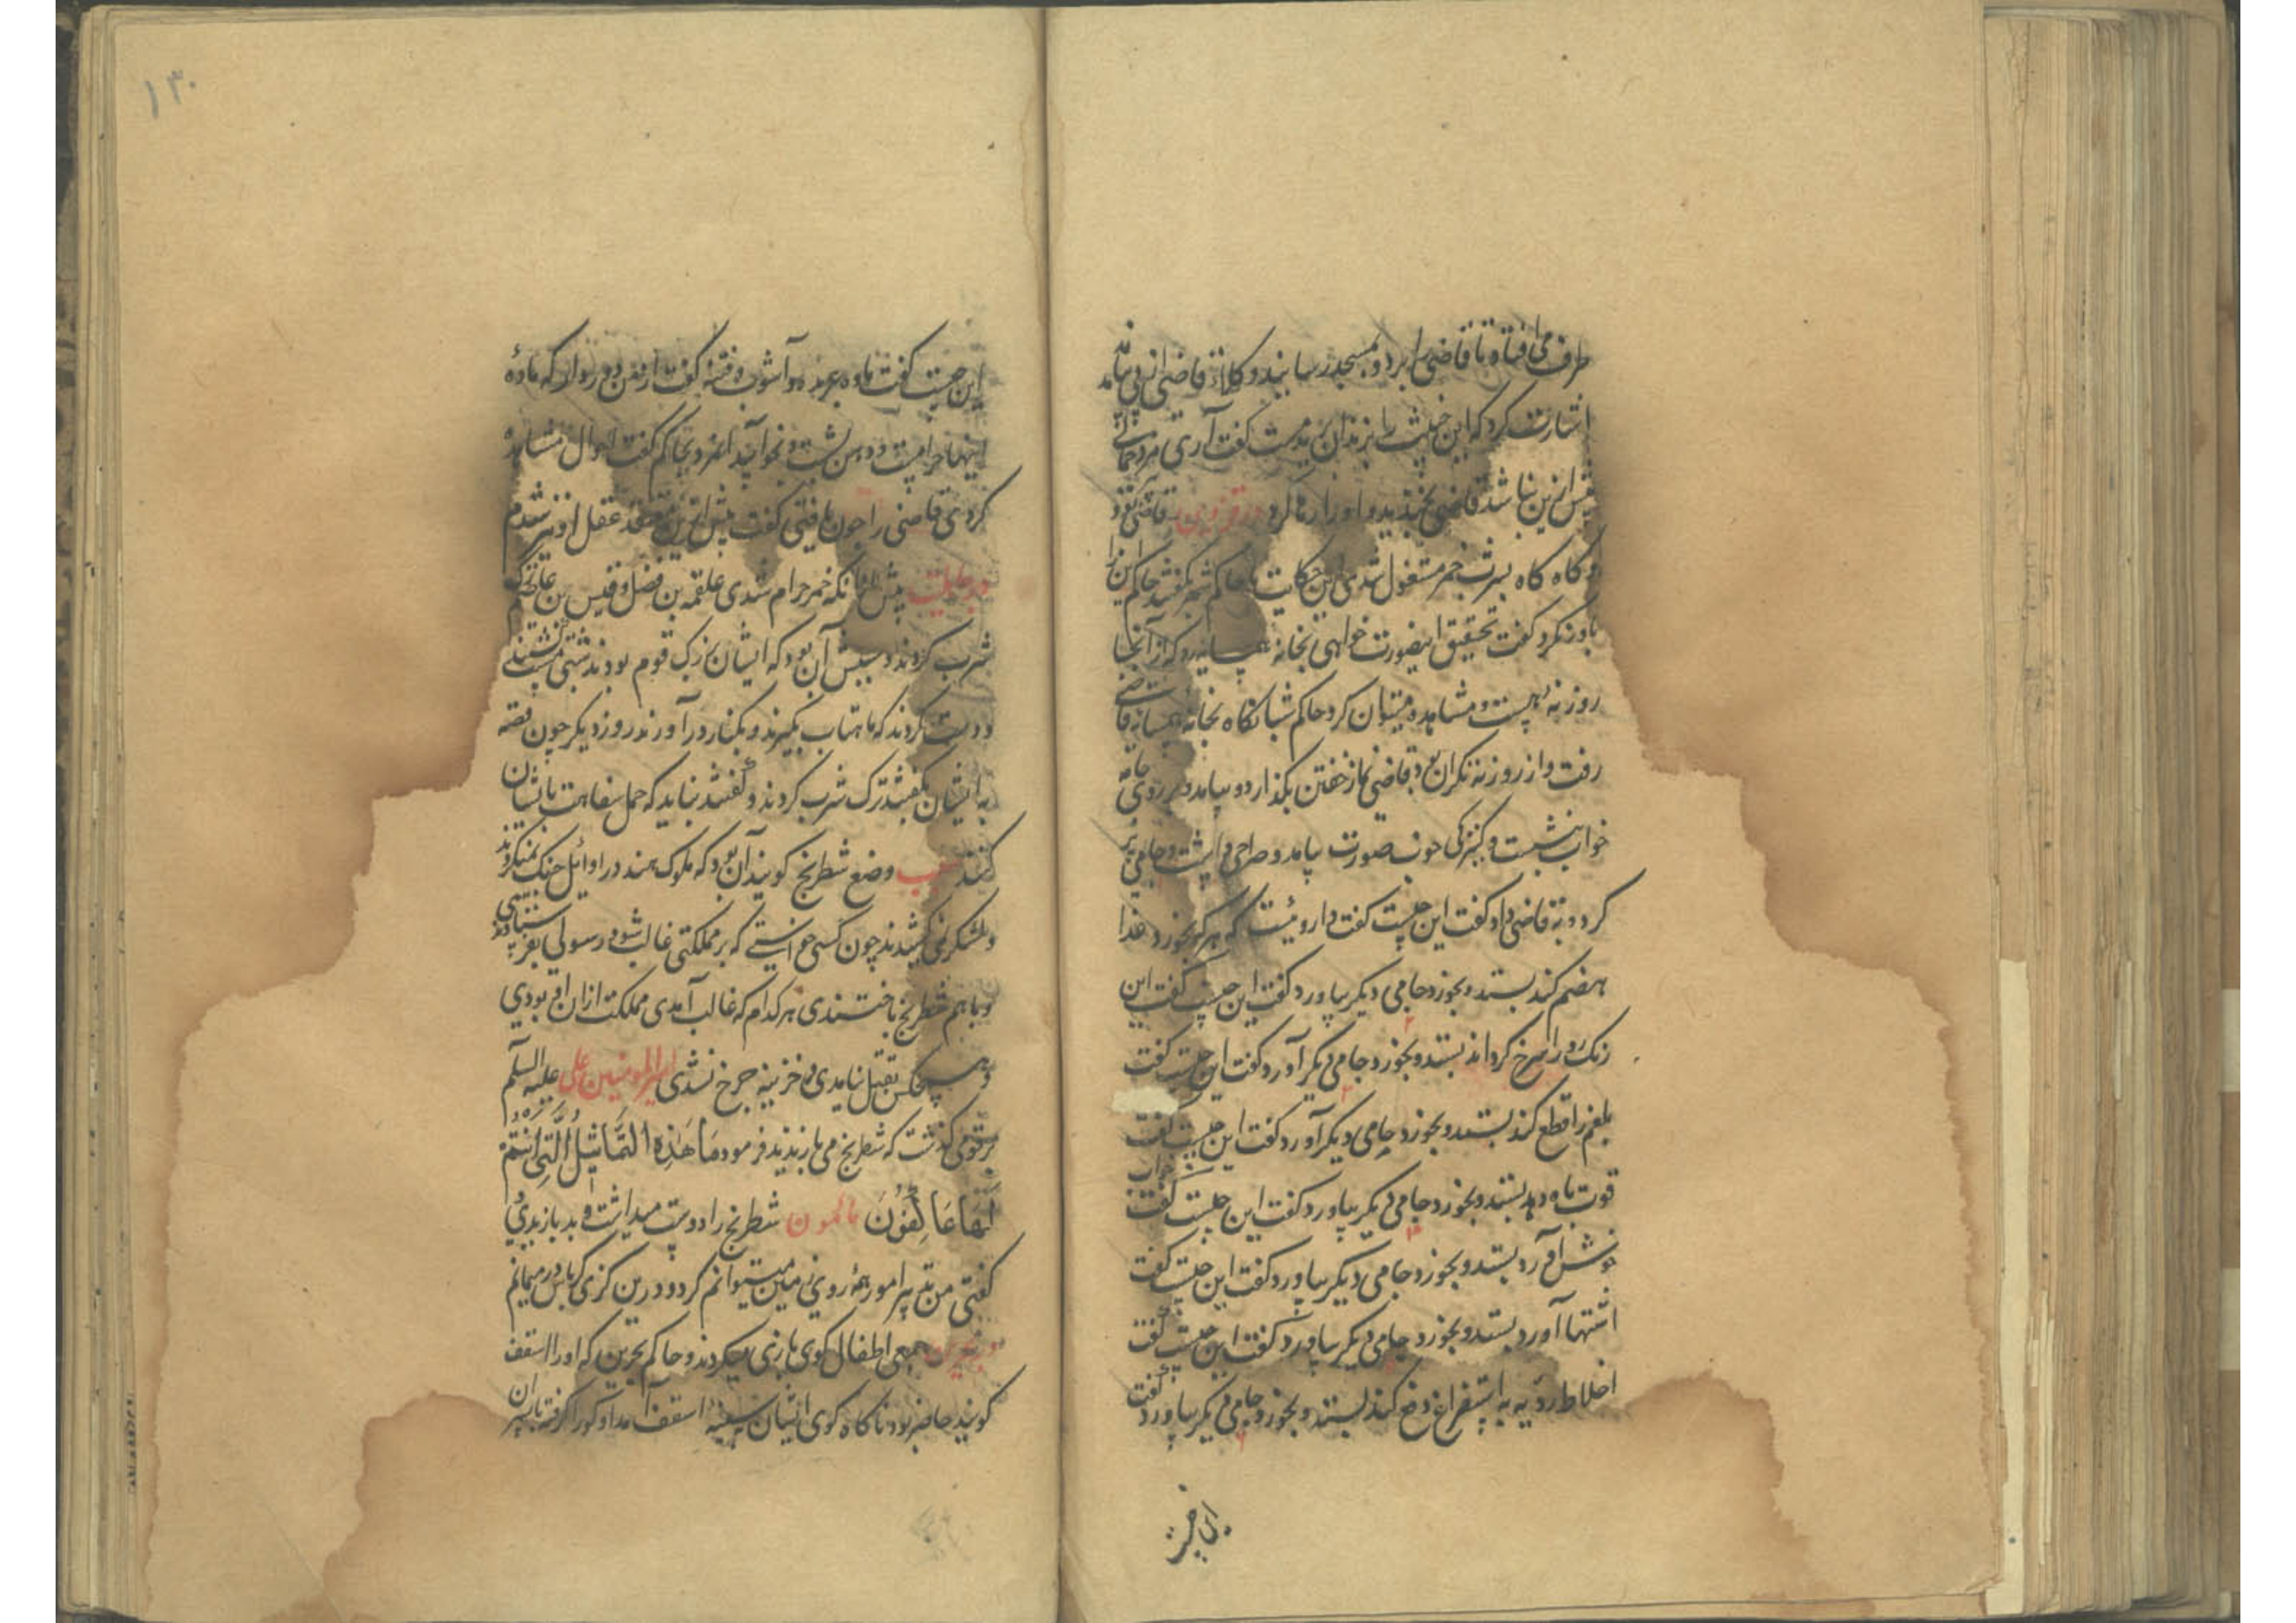 طرف می افتاد تا قاضی را برد و بمسجد رسانید و کلاء قاضی از پی بیامد
اشارت کرد که این خبیث را بزندان برید مست گفت آری مرد حمالی
پیش ازین نباشد قاضی بخندید و او را رها کرد در قزوین قاضی بود
و گاه گاه بشرب خمر مشغول شدی این حکایت با حاکم شهر گفتند حاکم این را
باور نکرد گفت تحقیق اینصورت خواهی بخانه همسایه رو که از آنجا
روزنه هست و مشاهده میتوان کرد حاکم شبانگاه بخانه همسایه قاضی
رفت و از روزنه نگران بود قاضی نماز خفتن بگذارد و بیامد و بر روی جامه
خواب بنشست و کنیزکی خوب صورت بیامد و صراحی داشت و جامی پر
کرد و به قاضی داد گفت این چیست گفت داروئیست که هر که بخورد غذا
هضم کند بستد و بخورد جامی دیگر بیاورد گفت این چیست گفت این
رنگ رو را سرخ گرداند بستد و بخورد جامی دیگر آورد گفت این چیست گفت
بلغم را قطع کند بستد و بخورد جامی دیگر آورد گفت این چیست گفت
قوت باه دهد بستد و بخورد جامی دیگر بیاورد گفت این چیست گفت خواب
خوش آورد بستد و بخورد جامی دیگر بیاورد گفت این چیست گفت
اشتها آورد بستد و بخورد جامی دیگر بیاورد گفت این چیست گفت
اخلاط ردیه به استفراغ دفع کند بستد و بخورد جامی دیگر بیاورد گفت
این چیست
۱۳۰
این چیست گفت ماده عربده و آشوب و فتنه گفت از من دور دار که ماده
اینها حرامست و دهن بشست و بخوابید آنمرد بحاکم گفت احوال مشاهده
کردی قاضی را چون یافتی گفت پیش ازین معتقد عقل او نیز شدم
در جاهلیت پیش از آنکه خمر حرام شدی علقمه بن فضل و قیس بن عاصم ترک
شرب کردند و سببش آن بود که ایشان بزرگ قوم بودند شبی مست نشستند
و دست کردند که ماهتاب بگیرند و بکنار در آورند روز دیگر چون قصه
به ایشان بگفتند ترک شرب کردند و گفتند نباید که حمل سفاهت بایشان
کنند سبب وضع شطرنج گویند آن بود که ملوک هند در اوائل جنگ نمیکردند
و لشکر نمی کشیدند چون کسی خواستی که بر مملکتی غالب شود رسولی بفرستادندی
و با هم شطرنج باختندی هر کدام که غالب آمدی مملکت از آن او بودی
و هیچکس بقتل نیامدی و خزینه خرج نشدی امیر المومنین علی علیه السلم
بر قومی گذشت که شطرنج می بازیدند فرمود مَا هَذِهِ التَّمَاثِیلُ الَّتِی أَنْتُمْ
لَهَا عَاكِفُونَ مامون شطرنج را دوست میداشت و بد بازیدی
گفتی من تدبیر امور همه روی زمین میتوانم کرد و درین گزی کرباس در میمانم
در بحرین جمعی اطفال گوی بازی میکردند و حاکم بحرین که او را اسقف
گویند حاضر بود ناگاه گوی ایشان بسینه اسقف آمد او گو را گرفته بایشان